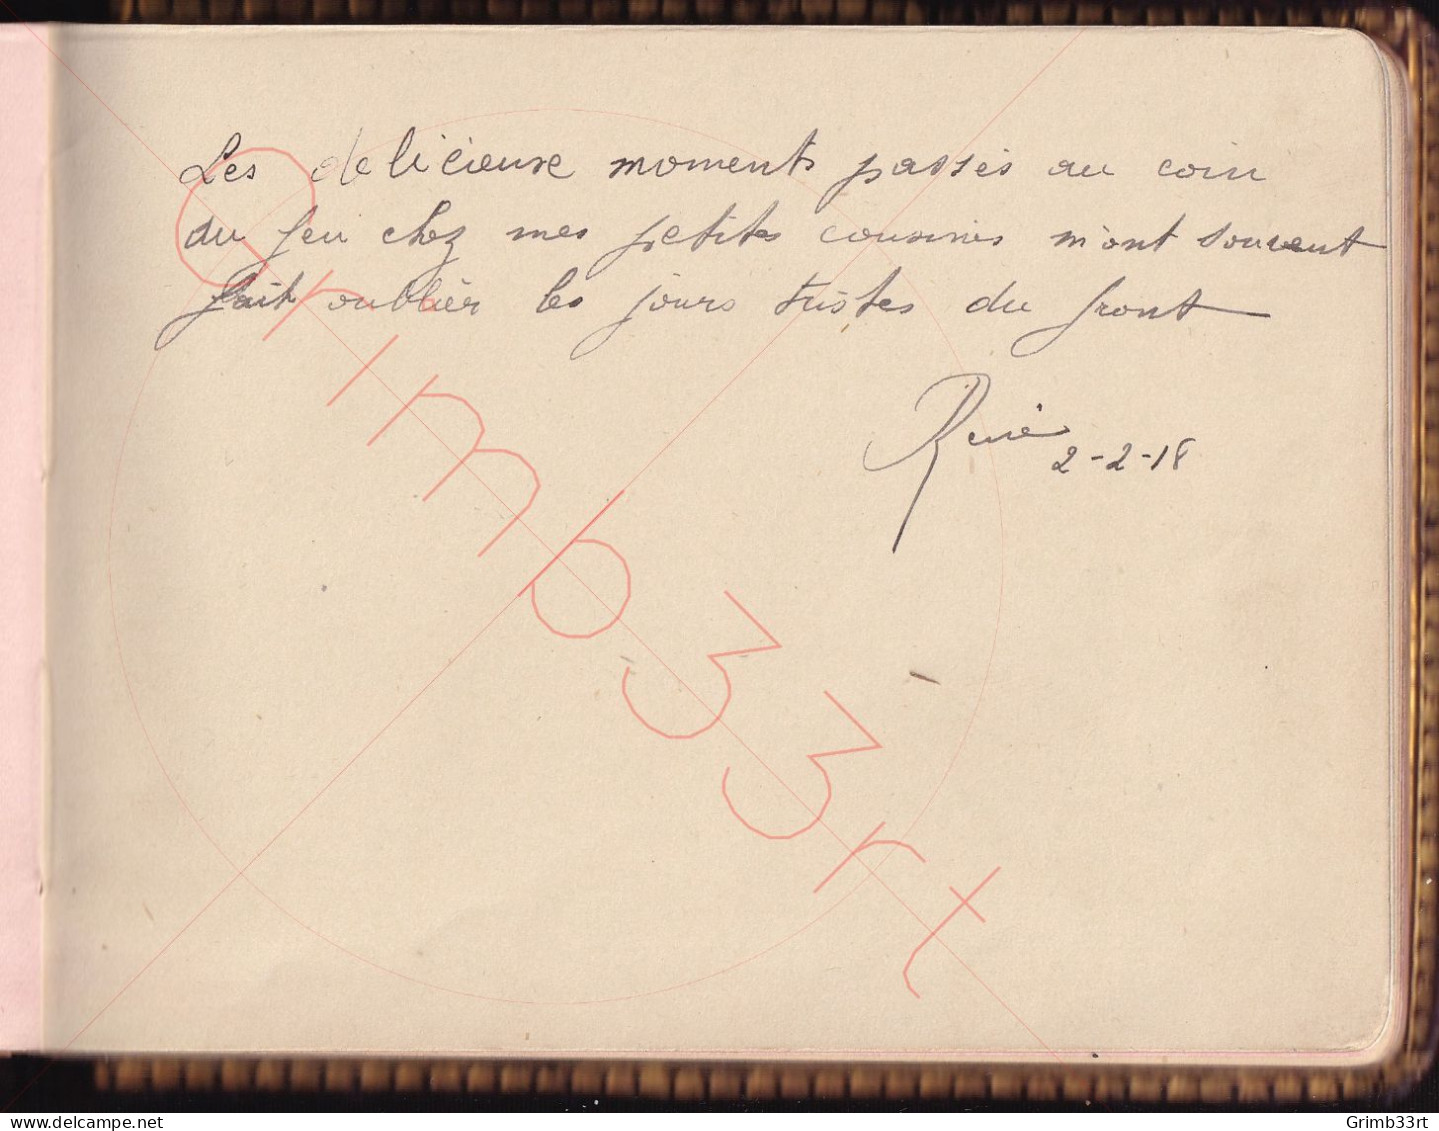 Les delicieuse moments passés au coin
du feu chez mes petites cousines m'ont souvent
fait oublier les jours tristes du front
René
2-2-18
Grimb33rt
www.delcampe.net
Grimb33rt